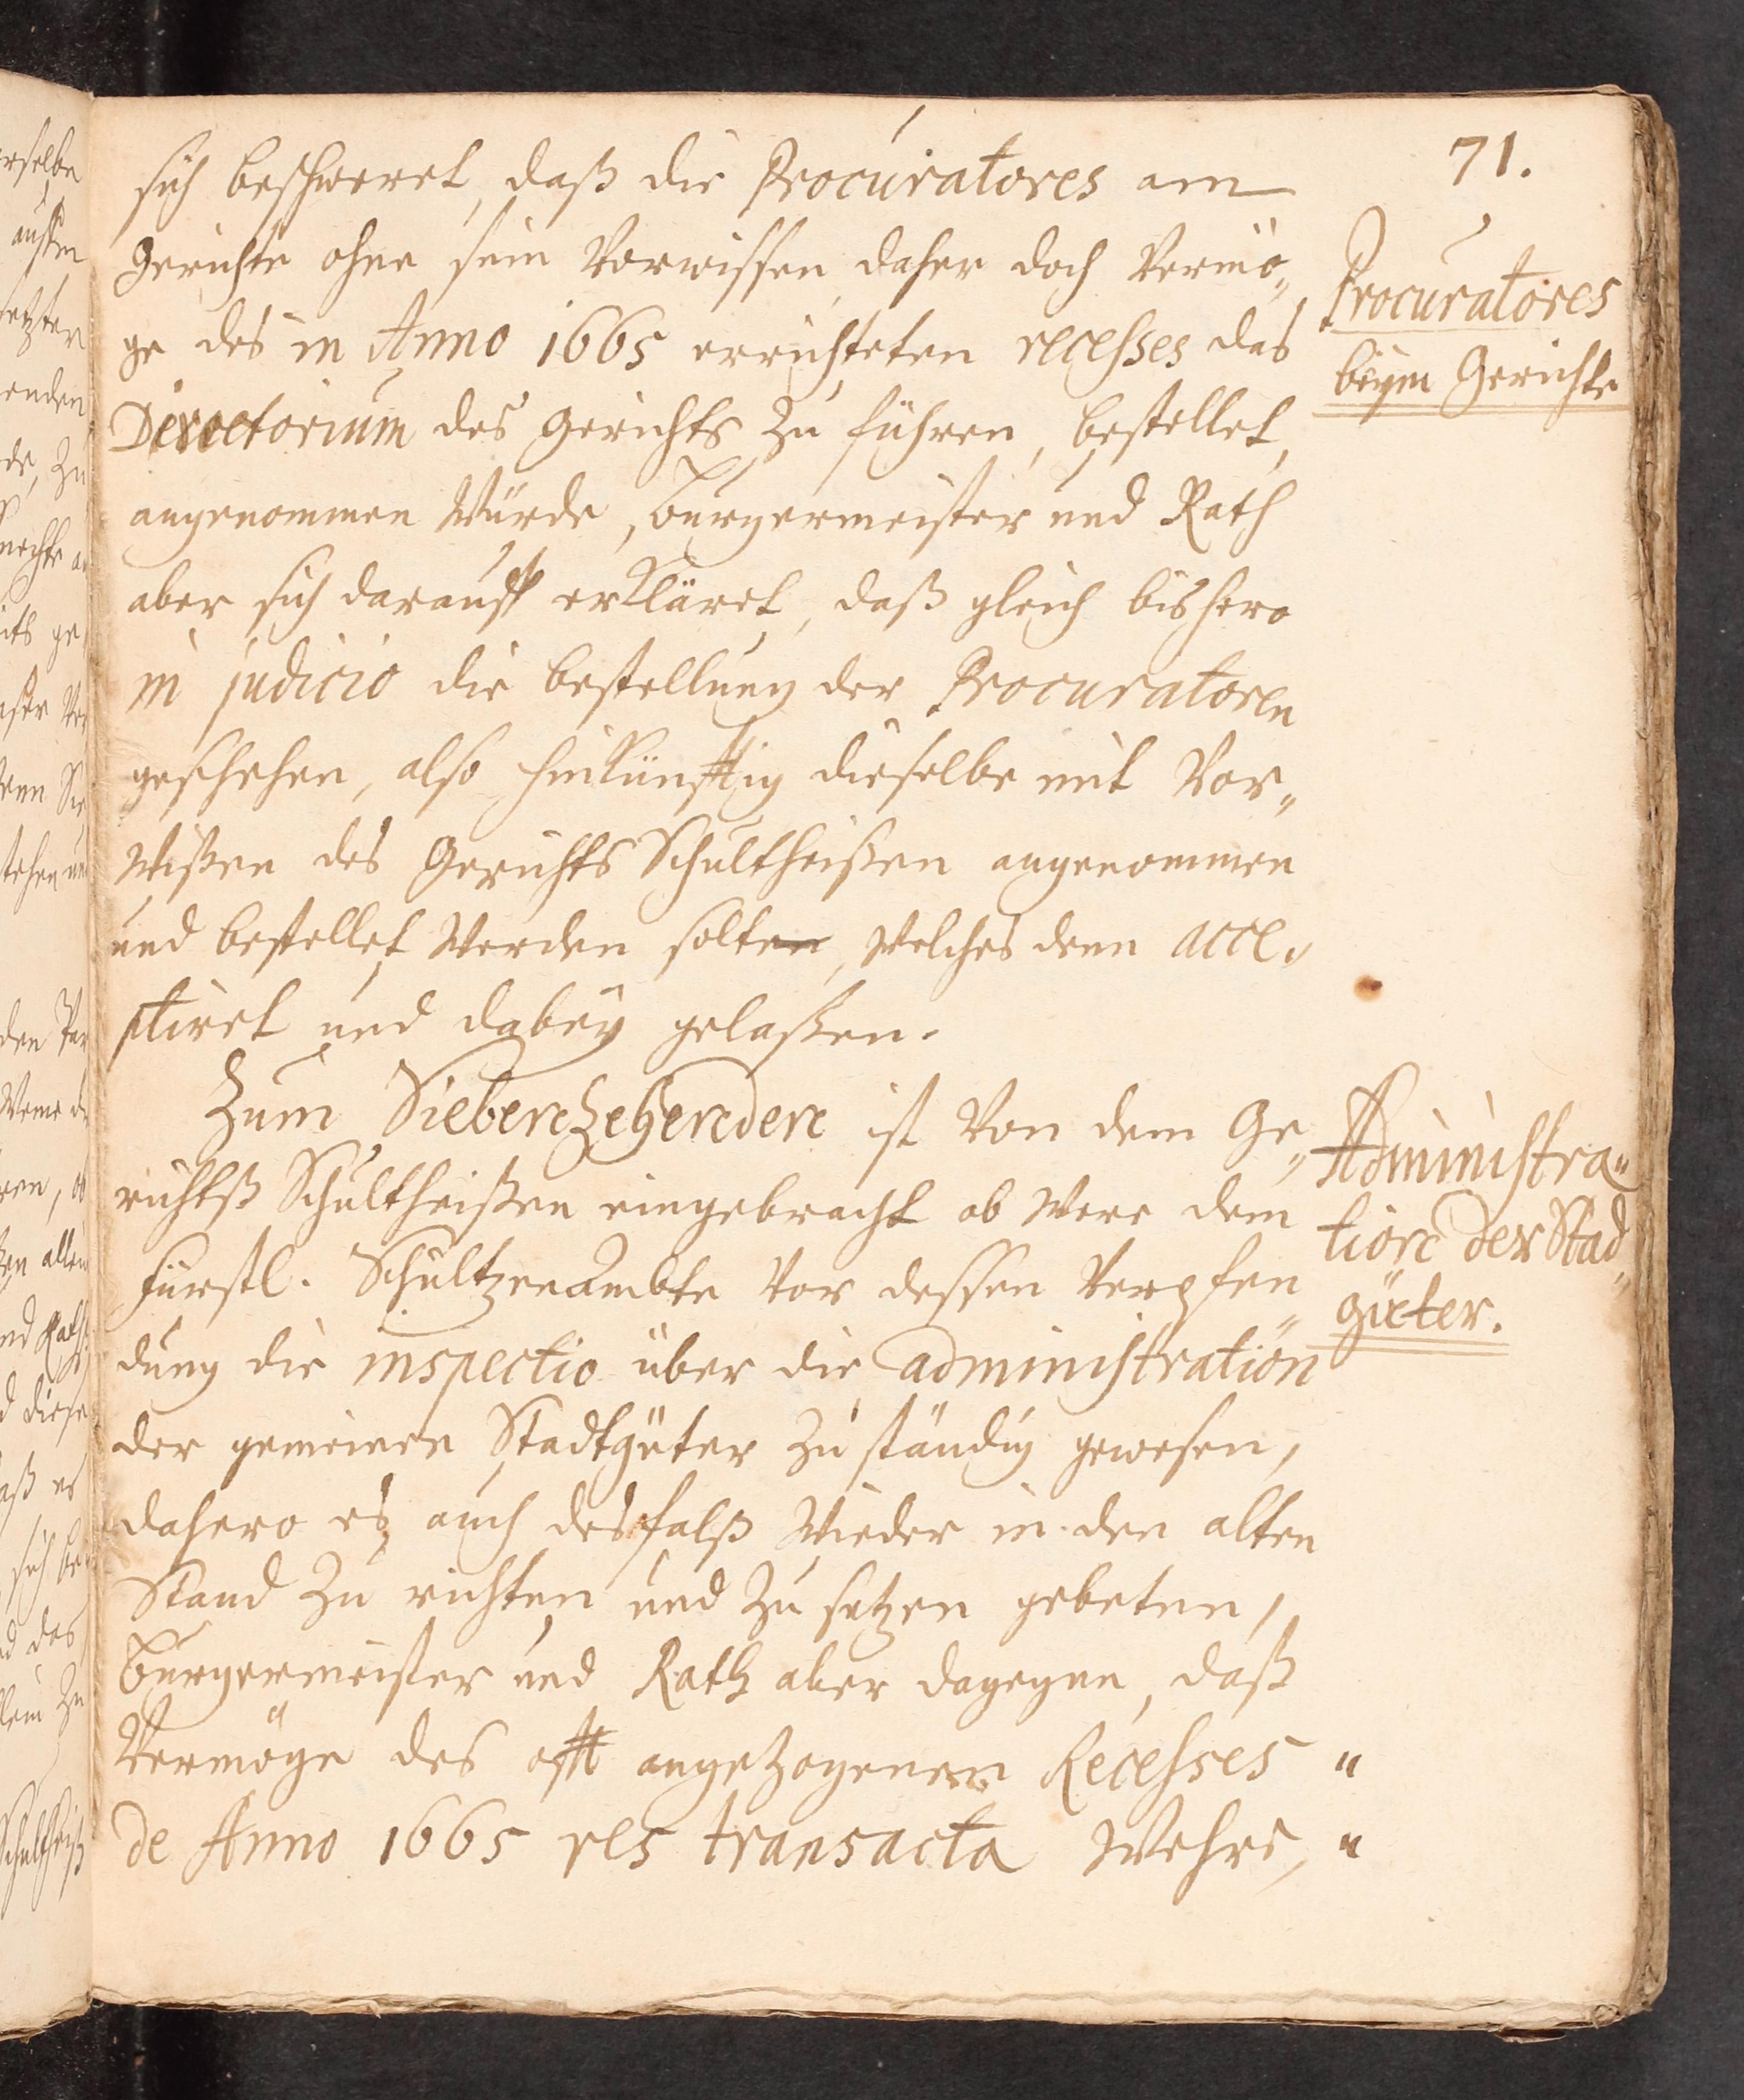 71.
sich beschweret, daß die Procuratores am
Gerichte ohne sein Vorwissen, daher doch Vermö„
ge des in Anno 1665 errichteten recesses das
Directorium des Gerichts zu führen, bestellet,
angenommen Würde, Burgermeister und Rath
aber sich darauff erkläret, daß gleich bishero
in judicio die bestellung der Procuratoren
geschehen, also hinkünfftig dieselbe mit Vor„
Wißen des Gerichts Schultheißen angenommen
und bestellet Werden solten, Welches denn acce„
ptiret und dabey gelaßen.
Zum Siebenzehenden ist Von dem Ge„
richtß Schultheißen eingebracht ob Were dem
Fürstl. Schultzenambte Vor dessen Verpfen„
dung die inspectio über die administration
der gemeinen Stadtgüter zuständig gewesen,
dahero es auch desfalß Wieder in den alten
Stand zu richten und zu setzen gebeten,
Burgermeister und Rath aber dagegen, daß
Vermöge des offt angezogenen Recesses „
de Anno 1665 res transacta Wehre, „
Procuratores
beym Gerichte
Administra„
tion der Stad„
güter.